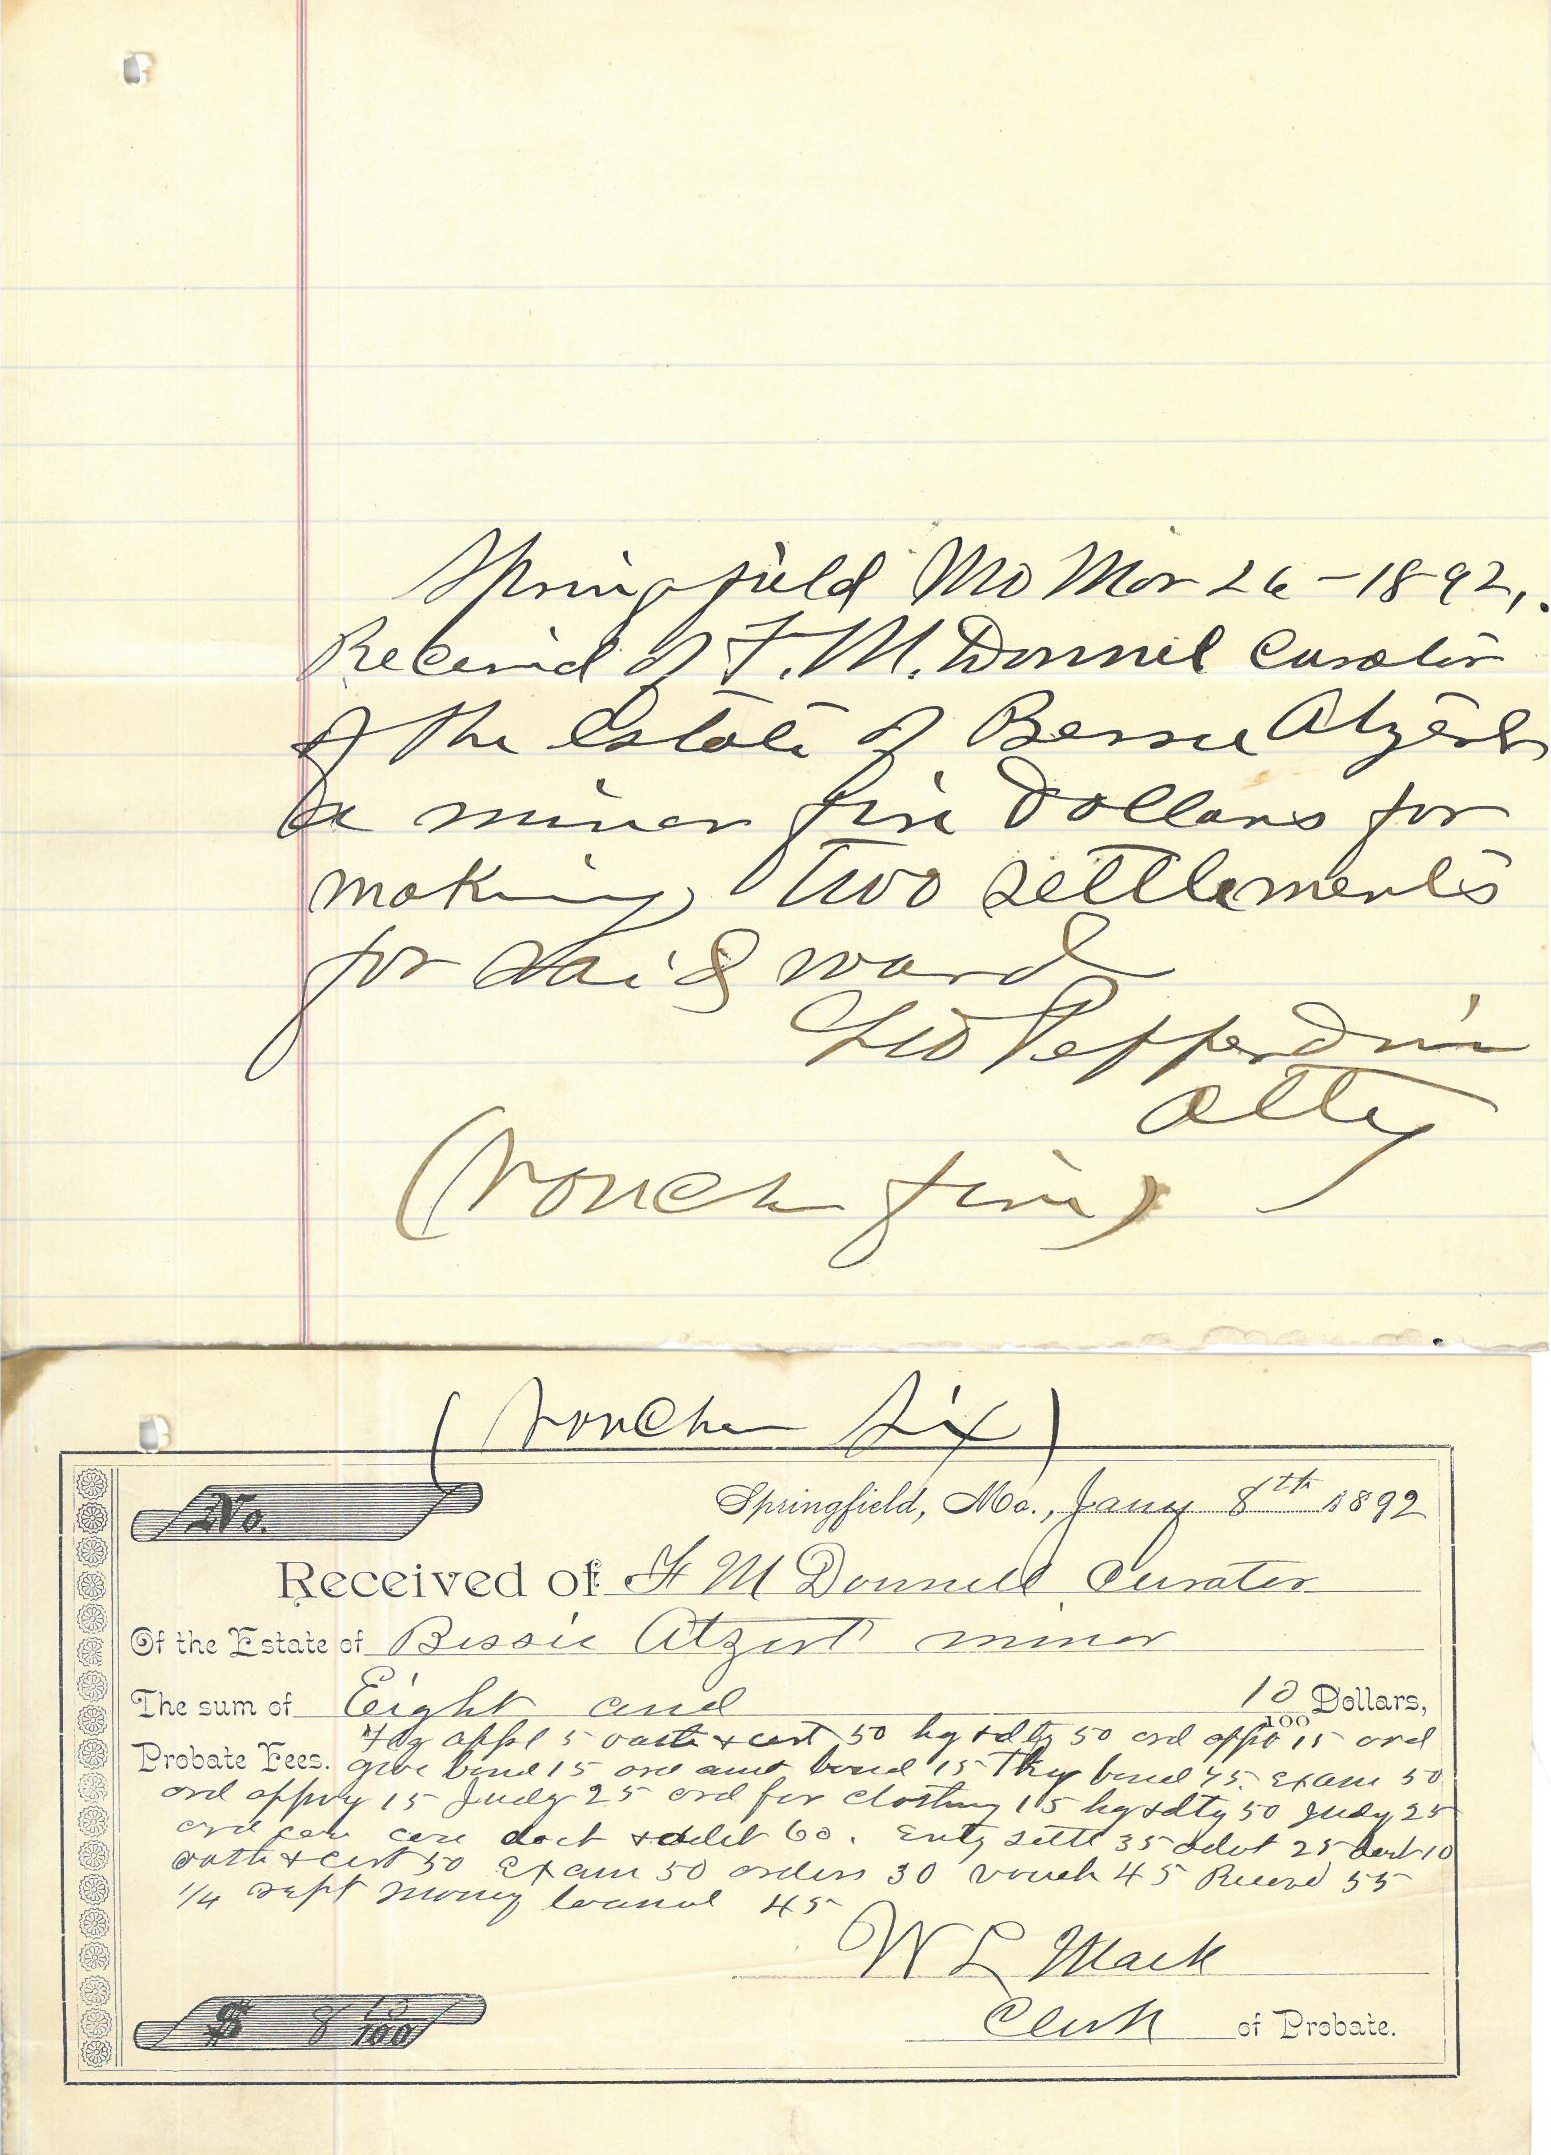 Springfield Mo Mar 26 - 1892,
Received of F. M. Donnel Curator
of the Estate of Bessie Atzert
a minor five Dollars for
making two settlements
for said ward
Geo Pepperdine
Atty
(Vouch five)
(Voucher Six)
No. Springfield, Mo., Jany 8th 1892
Received of F M Donnell Curator
Of the Estate of Bessie Atzert minor
The sum of Eight and 10/100 Dollars,
Probate Fees. appl 5 oath & cert 50 hg & dtg 50 ord appo 15 ord
give bond 15 ord amt bond 15 bond 45 Exam 50
ord apprvg 15 Judg 25 ord for clothing 15 hg & dtg 50 Judg 25
doct 60. Entg settl 35 25 10
oath & cert 50 Exam 50 orders 30 vouch 45 Record 55
1/4 rept money loaned 45
W L Mack
Clerk of Probate.
$ 8 10/100